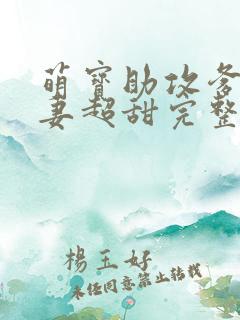 萌宝助攻爹
妻超甜完整
楊玉好
未经同意禁止转载